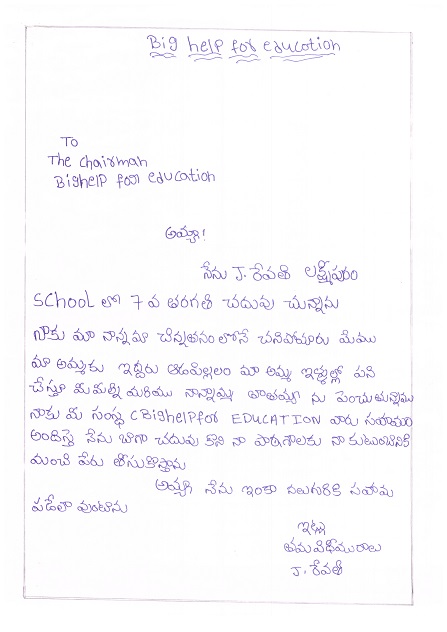 Big help for education
To
The chairman
Bighelp for education
అయ్యా!
నేను J. రేవతి లక్ష్మీపురం
SChool లో 7 వ తరగతి చదువు చున్నాను
నాకు మా నాన్న మా చిన్నతనంలోనే చనిపోయారు మేము
మా అమ్మకు ఇద్దరు ఆడపిల్లలం మా అమ్మ ఇళ్ళల్లో పని
చేస్తూ మమల్ని మరియు నాన్నమ్మ తాతయ్య ను పెంచుతున్నాము
నాకు మీ సంస్థ CBighelpfor EDUCATION వారు సహాయం
అందిస్తె నేను బాగా చదువు కొని నా పాఠశాలకు నా కుటుంబానికి
మంచి పేరు తీసుకొస్తాను
అయ్యా నేను ఇంకా నలుగురికి సహాయ
పడేలా వుంటాను
ఇట్లు
తమ విధేయురాలు
J. రేవతి